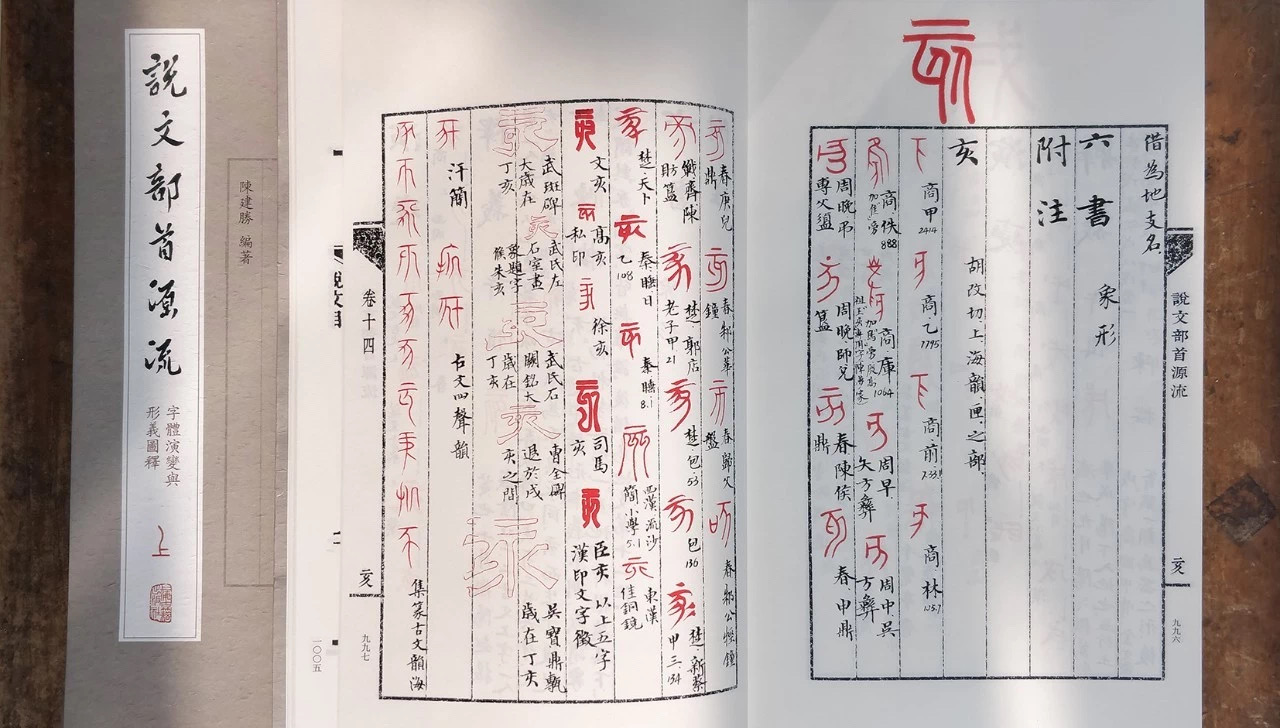 説文部首源流
字體演變與
形義圖釋
上
陳建勝 編著
亥
借為地支名
六書 象形
附注
胡改切、上海韻、匣、之部、
亥
商 甲 2414
商 乙 1795
商 前
商 林
商 佚 888
商 庫 1064
周早 矢方彝
周中 吳方彝
周晚 弔專父盨
周晚 師兌簋
春 陳侯鼎
春 申鼎
説文部首源流
亥
九九六
春 庚兒鼎
春 邾公華鐘
春 歸父盤
春 邾公牼鐘
戰齊 陳肪簋
楚 郭店 老子甲21
楚 包53
包136
楚 新蔡 甲三·134
楚 天卜
秦 睡日乙108
秦 睡8.1
西漢 流沙簡 小學5.1
東漢 佳銅鏡
文亥
高亥私印
徐亥
司馬亥
臣亥 以上五字漢印文字徵
武斑碑 大歲在丁亥
武氏左石室畫象題字 侯朱亥
武氏石闕銘 大歲在丁亥
曹全碑 退於戌亥之間
吳寶鼎甎 歲在丁亥
汗簡
古文四聲韻
集篆古文韻海
卷十四
亥
九九七
一〇〇五